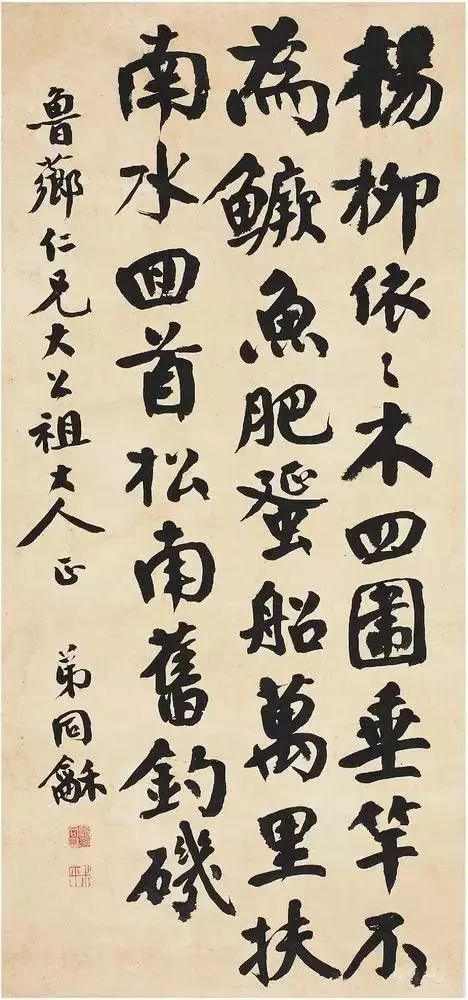 楊柳依〻木四圍垂竿不
為鱖魚肥蜑船萬里扶
南水囬首松南舊釣磯
魯薌仁兄大公祖大人正 弟同龢